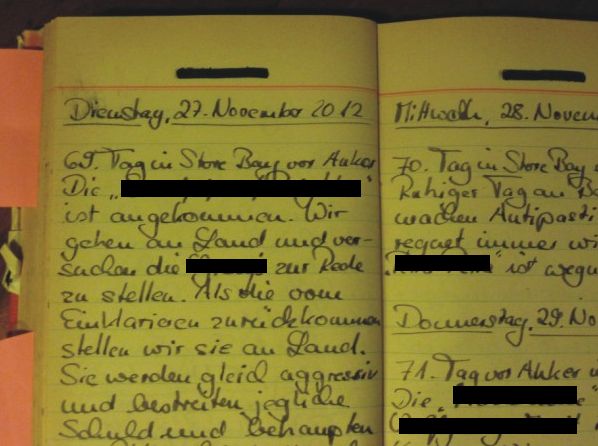 Dienstag, 27. November 2012
69. Tag in Store Bay vor Anker
Die „
ist angekommen. Wir
gehen an Land und ver-
suchen die zur Rede
zu stellen. Als die vom
Einklarieren zurückkommen
stellen wir sie an Land.
Sie werden gleich aggressiv
und bestreiten jegliche
Schuld und behaupten
Mittwoch, 28. Novem
70. Tag in Store Bay
Ruhiger Tag an B
machen Antipasti
regnet immer wi
" ist wegen
Donnerstag, 29. No
71. Tag vor Anker
Die „